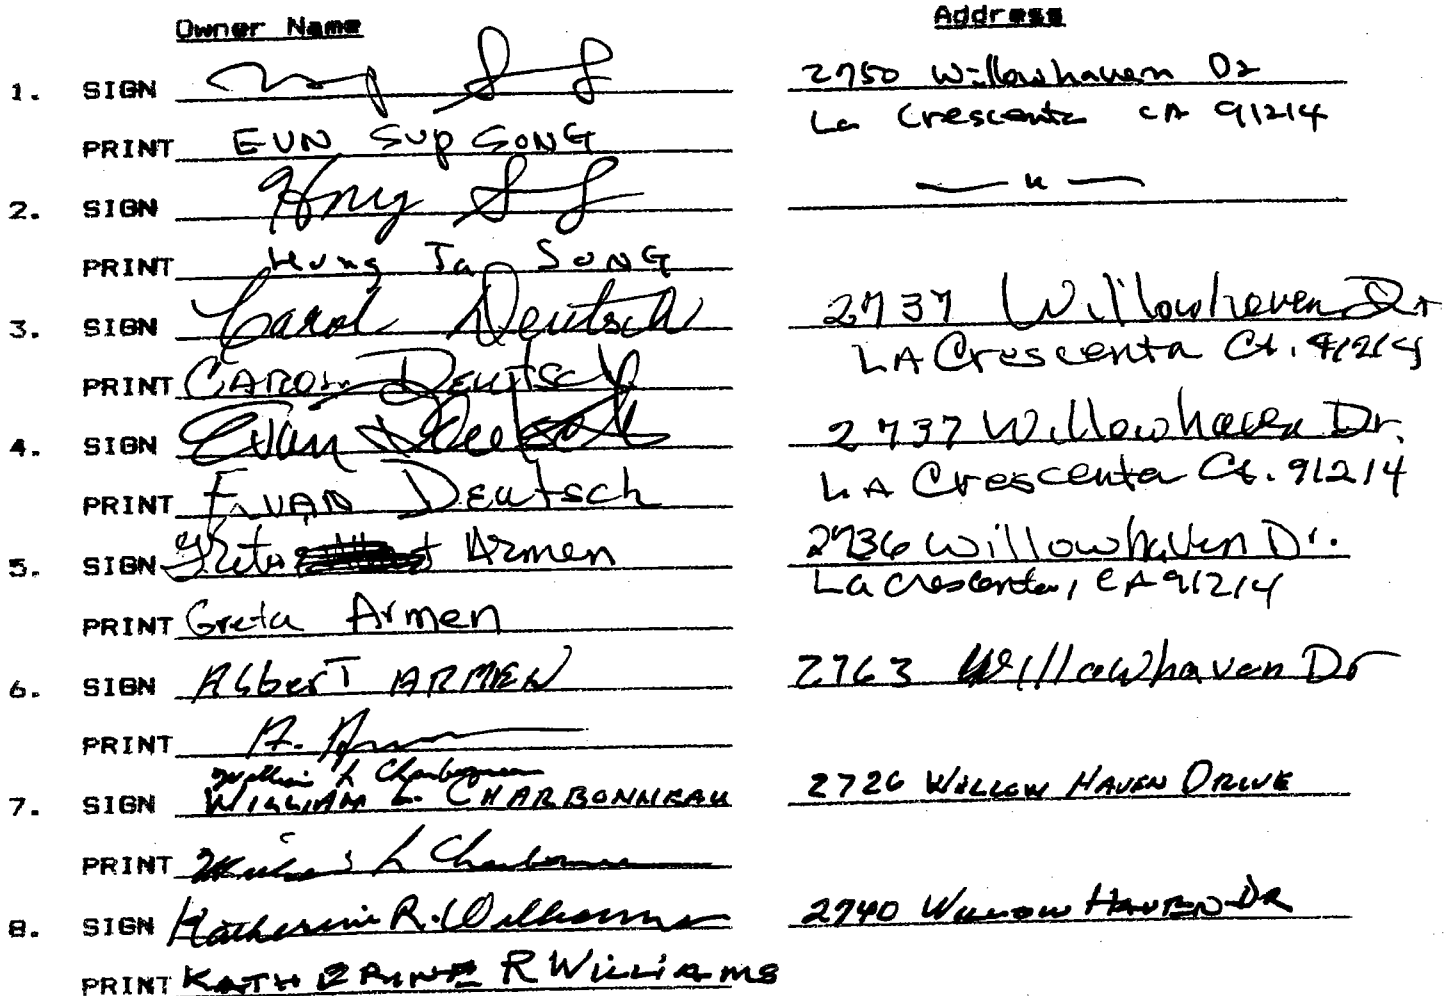 Owner Name Address
1. SIGN 2750 Willowhaven Dr
La Crescenta CA 91214
PRINT EUN SUP SONG
2. SIGN — " —
PRINT Hung Ja SONG
3. SIGN Carol Deutsch 2737 Willowhaven Dr
LA Crescenta Ca. 91214
PRINT CAROL DEUTSCH
4. SIGN Evan Deutsch 2737 Willowhaven Dr.
LA Crescenta Ca. 91214
PRINT EVAN Deutsch
5. SIGN Greta Armen 2736 Willowhaven Dr.
La Crescenta, CA 91214
PRINT Greta Armen
6. SIGN Albert ARMEN 2763 Willowhaven Dr
PRINT A. Armen
William L Charbonneau
7. SIGN WILLIAM L. CHARBONNEAU 2726 WILLOW HAVEN DRIVE
PRINT William L Charbonneau
8. SIGN Katherine R. Williams 2740 WILLOW HAVEN DR
PRINT KATHERINE R WILLIAMS